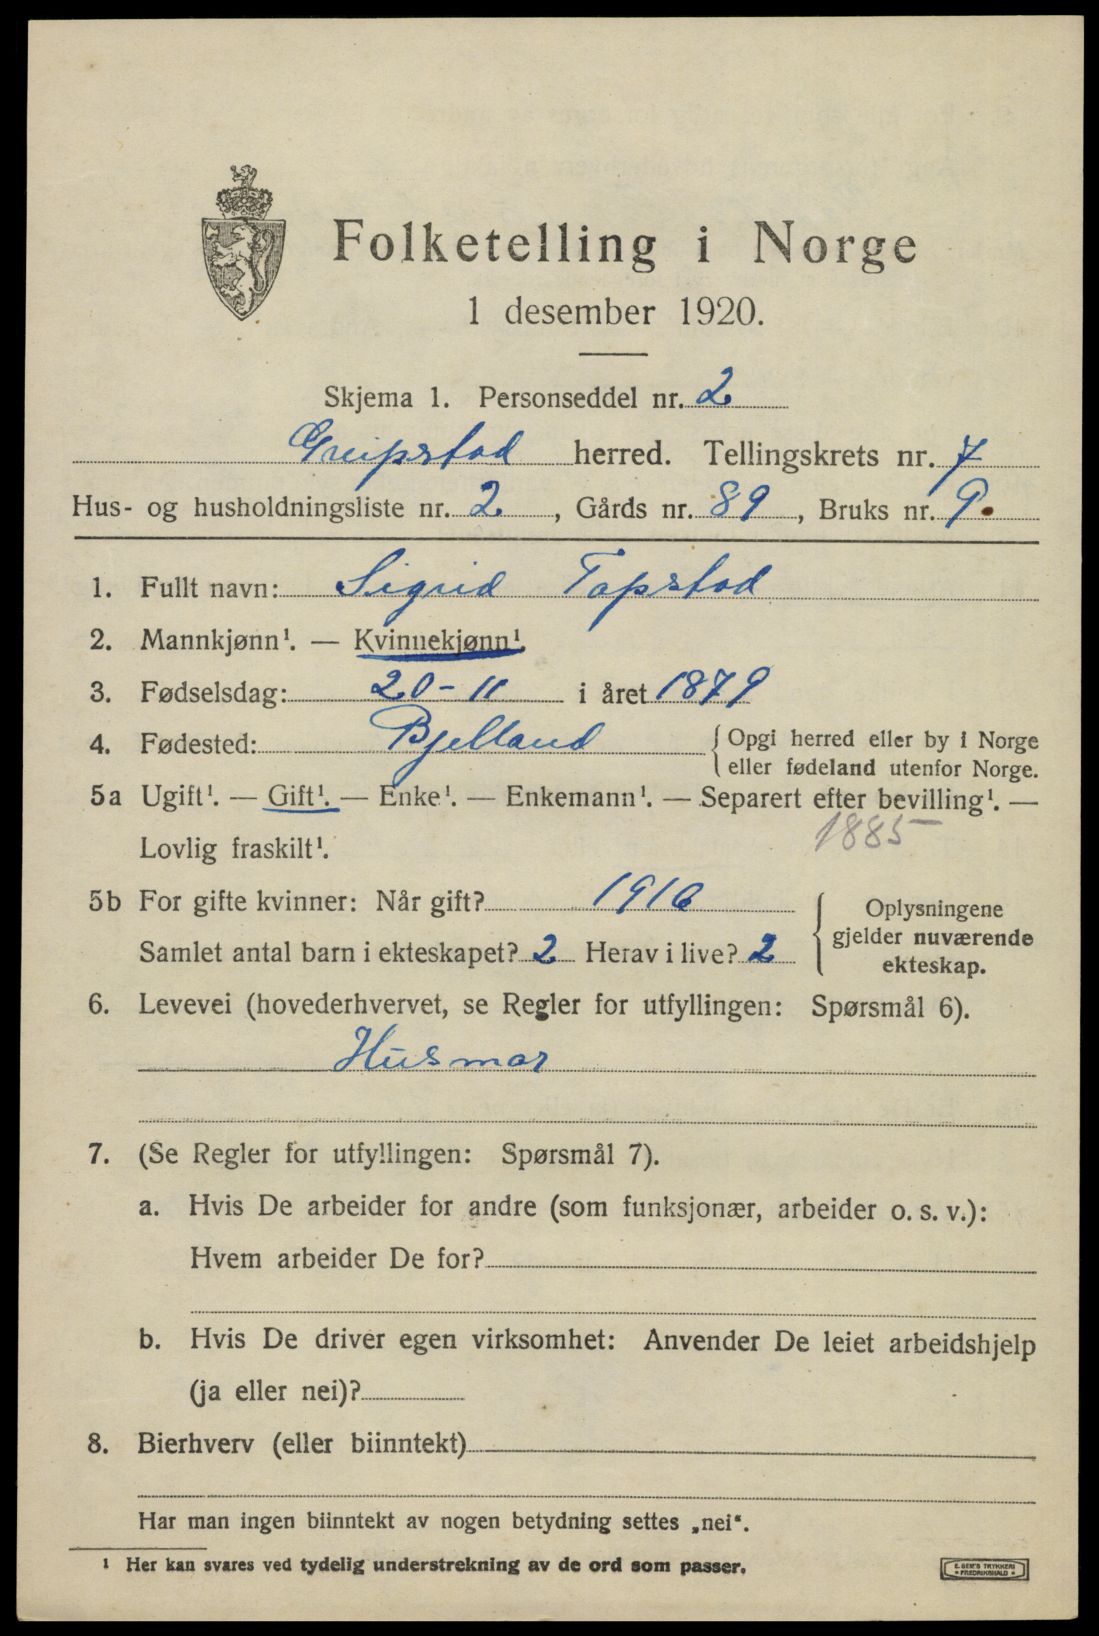 Folketelling i Norge
1 desember 1920.
Skjema 1. Personseddel nr. 2
Greipstad herred. Tellingskrets nr. 7
Hus- og husholdningsliste nr. 2, Gårds nr. 89, Bruks nr. 9.
1. Fullt navn: Sigrid Tapstad
2. Mannkjønn¹. — Kvinnekjønn¹.
3. Fødselsdag: 20-11 i året 1879
4. Fødested: Bjelland { Opgi herred eller by i Norge
eller fødeland utenfor Norge.
5a Ugift¹. — Gift¹. — Enke¹. — Enkemann¹. — Separert efter bevilling¹. —
Lovlig fraskilt¹. 1885
5b For gifte kvinner: Når gift? 1916 { Oplysningene
gjelder nuværende
Samlet antal barn i ekteskapet? 2 Herav i live? 2
ekteskap.
6. Levevei (hovederhvervet, se Regler for utfyllingen: Spørsmål 6).
Husmor
7. (Se Regler for utfyllingen: Spørsmål 7).
a. Hvis De arbeider for andre (som funksjonær, arbeider o. s. v.):
Hvem arbeider De for?
b. Hvis De driver egen virksomhet: Anvender De leiet arbeidshjelp
(ja eller nei)?
8. Bierhverv (eller biinntekt)
Har man ingen biinntekt av nogen betydning settes „nei“.
¹ Her kan svares ved tydelig understrekning av de ord som passer.
E. SEM'S TRYKKERI
• FREDRIKSHALD •